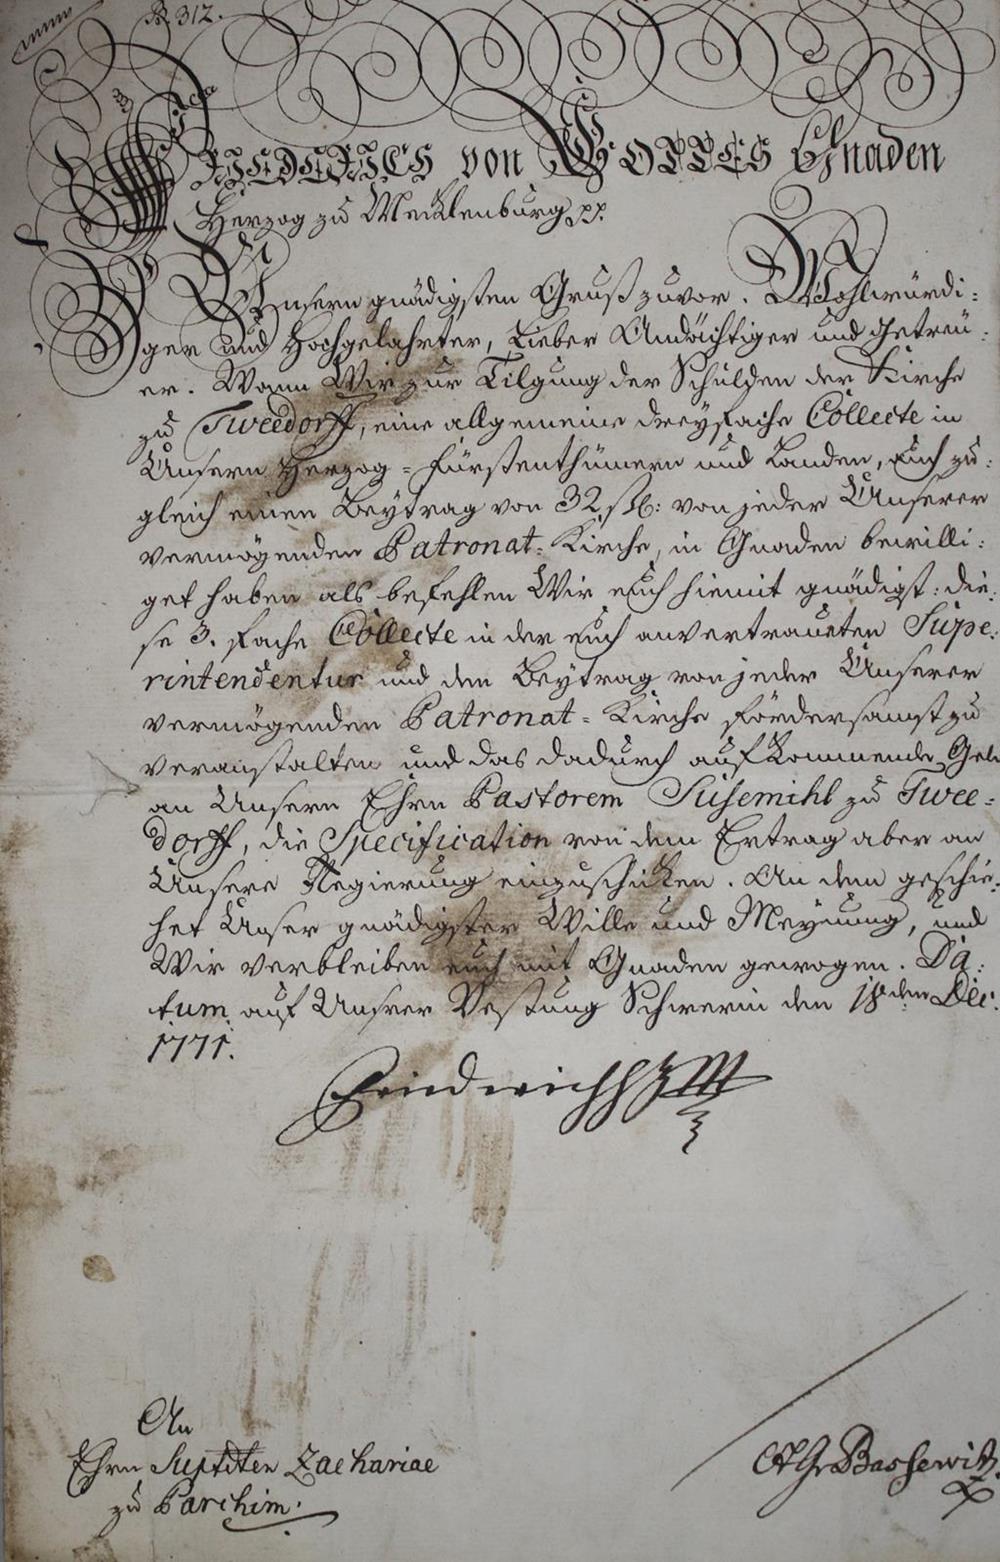 R. 312.
FRIEDERICH von GOTTES Gnaden
Herzog zu Mecklenburg pp.
Unsern gnädigsten Gruß zuvor. Wohlwürdi-
ger und Hochgelahrter, Lieber Andächtiger und Getreü-
er. Wann Wir zur Tilgung der Schulden der Kirche
zu Tweedorff, eine allgemeine dreyfache Collecte in
Unsern Herzog-Fürstenthümern und Landen, auch zu-
gleich einen Beytrag von 32 ßl: von jeder Unserer
vermögenden Patronat-Kirche, in Gnaden bewilli-
get haben als befehlen Wir euch hiemit gnädigst: die-
se 3. fache Collecte in der euch anvertraueten Supe-
rintendentur und den Beytrag von jeder Unserer
vermögenden Patronat-Kirche fördersamst zu
veranstalten und das dadurch aufkommende Geld
an Unsern Ehrn Pastorem Susemihl zu Twee-
dorff, die Specification von dem Ertrag aber an
Unsere Regierung einzuschicken. An dem geschie-
het Unser gnädigster Wille und Meynung, und
Wir verbleiben euch mit Gnaden gewogen. Da-
tum auf Unsrer Vestung Schwerin den 18den Dec.
1771.
Friederich HzM
An
Ehrn Suptdten Zachariae
zu Parchim.
Bassewitz